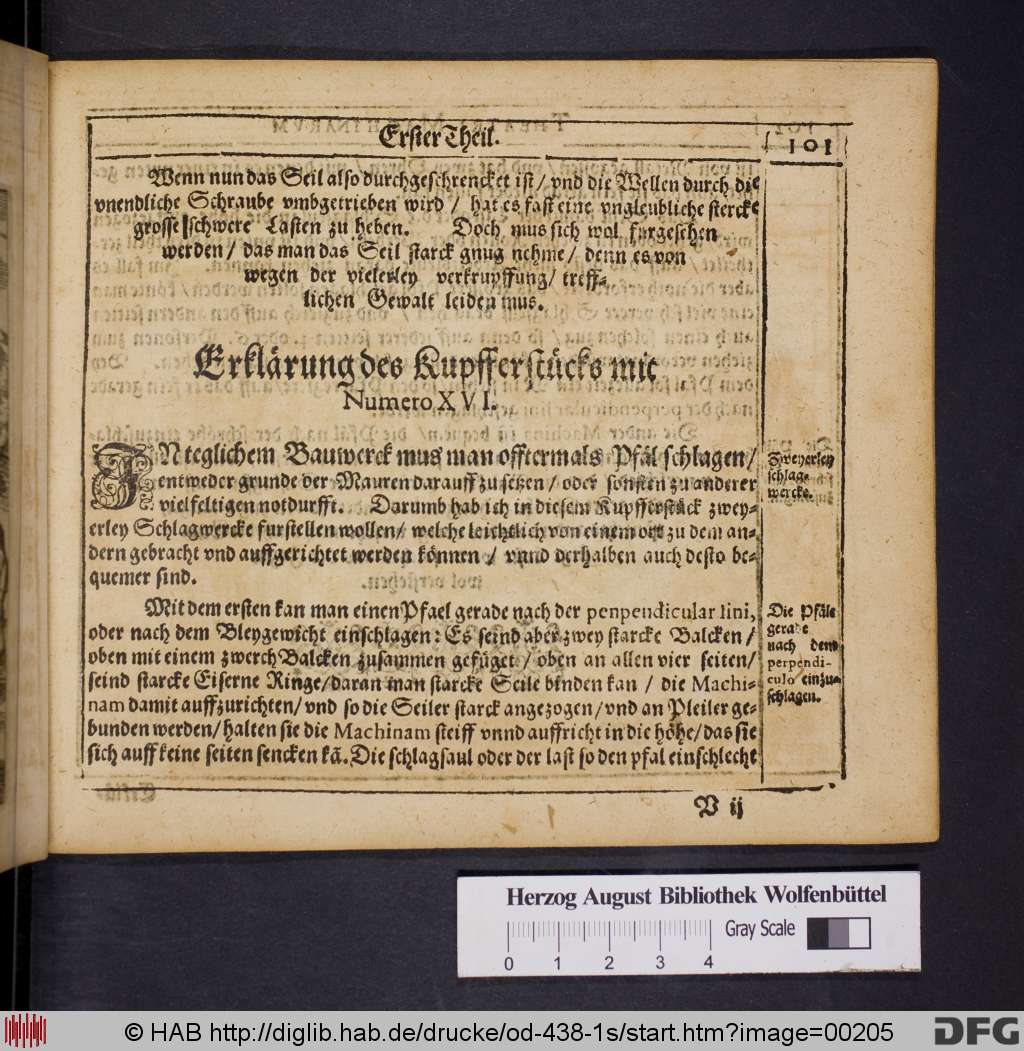 Erster Theil.
101
Wenn nun das Seil also durchgeschrencket ist / vnd die Wellen durch die
vnendliche Schraube vmbgetrieben wird / hat es fast eine vngleubliche stercke
grosse schwere Lasten zu heben. Doch mus sich wol furgesehen
werden / das man das Seil starck gnug nehme / denn es von
wegen der vielerley verkrupffung / treff-
lichen Gewalt leiden mus.
Erklärung des Kupfferstücks mit
Numero XVI.
IN teglichem Bauwerck mus man offtermals Pfäl schlagen /
entweder grunde der Mauren darauff zu setzen / oder sonsten zu anderer
vielfeltigen notdurfft. Darumb hab ich in diesem Kupfferstück zwey-
erley Schlagwercke furstellen wollen / welche leichtlich von einem ort zu dem an-
dern gebracht vnd auffgerichtet werden können / vnnd derhalben auch desto be-
quemer sind.
Zweyerley
schlag-
wercke.
Mit dem ersten kan man einen Pfael gerade nach der penpendicular lini,
oder nach dem Bleygewicht einschlagen: Es seind aber zwey starcke Balcken /
oben mit einem zwerch Balcken zusammen gefüget / oben an allen vier seiten /
seind starcke Eiserne Ringe / daran man starcke Seile binden kan / die Machi-
nam damit auffzurichten / vnd so die Seiler starck angezogen / vnd an Pleiler ge-
bunden werden / halten sie die Machinam steiff vnnd auffricht in die höhe / das sie
sich auff keine seiten sencken kā. Die schlagsaul oder der last so den pfal einschlecht
Die Pfäle
gerade
nach dem
perpendi-
culo einzu-
schlagen.
P ij
Herzog August Bibliothek Wolfenbüttel
Gray Scale
0 1 2 3 4
© HAB http://diglib.hab.de/drucke/od-438-1s/start.htm?image=00205
DFG